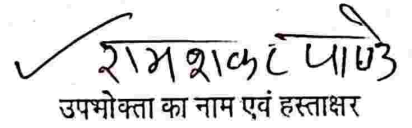 रामशकर पाण्डे
उपभोक्ता का नाम एवं हस्ताक्षर